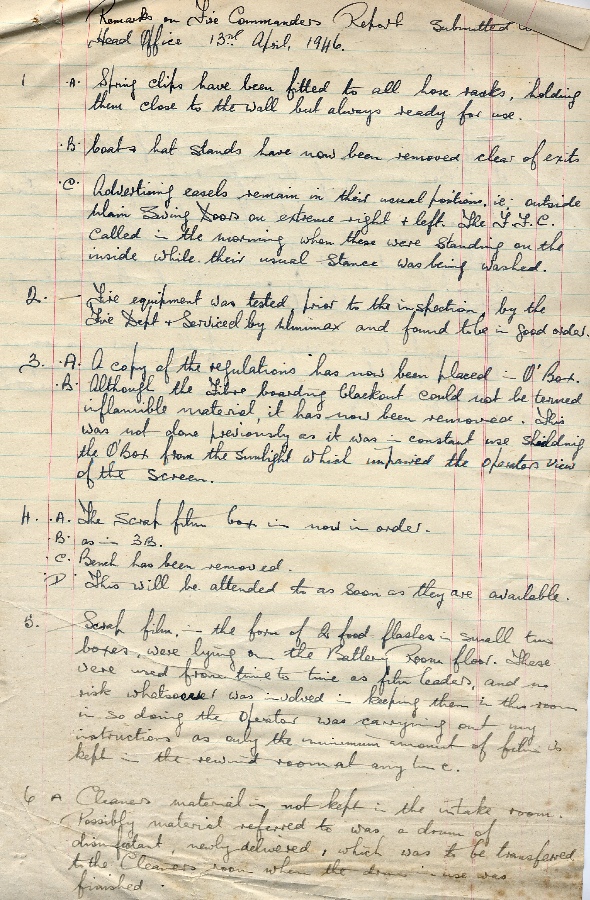 Remarks on Fire Commanders Report Submitted
Head Office 13th April, 1946.
1 A. Spring clips have been fitted to all hose racks, holding
them close to the wall but always ready for use.
B. Coats & hat stands have now been removed clear of exits
C. Advertising easels remain in their usual positions, ie; outside
Main Swing Doors on extreme right & left. The F.F.C.
called in the morning when these were standing on the
inside while their usual stance was being washed.
2. — Fire equipment was tested prior to the inspection by the
Fire Dept & Serviced by Minimax and found to be in good order.
3. A. A copy of the regulations has now been placed in O' Box.
B. Although the Fibre boarding blackout could not be termed
inflamible material, it has now been removed. This
was not done previously as it was in constant use shielding
the O'Box from the sunlight which impaired the operators view
of the Screen.
4. A. The Scrap film box is now in order.
B. as in 3B.
C. Bench has been removed.
D. This will be attended to as soon as they are available.
5. Scrap film, in the form of 2 food flashes in small tin
boxes, were lying on the Battery Room floor. These
were used from time to time as film leaders, and no
risk whatsoever was involved in keeping them in this room
in so doing the Operator was carrying out my
instructions as only the minimum amount of film is
kept in the rewind room at any time.
6 A Cleaners material is not kept in the intake room.
Possibly material referred to was a drum of
disinfectant, newly delivered, which was to be transferred
to the Cleaners room when the drum in use was
finished.